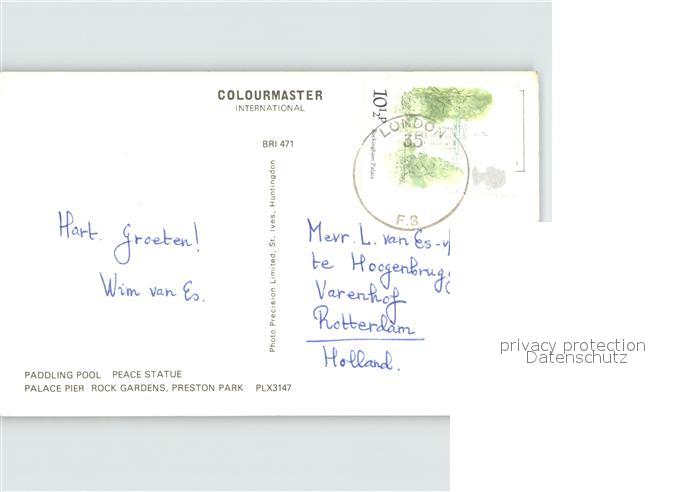 COLOURMASTER
INTERNATIONAL
BRI 471
10½P
LONDON
35
F.S.
Photo Precision Limited, St. Ives, Huntingdon
Hart. Groeten!
Wim van Es.
Mevr. L. van Es-v
te Hoogenbrug
Varenhof
Rotterdam
Holland.
PADDLING POOL PEACE STATUE
PALACE PIER ROCK GARDENS, PRESTON PARK PLX3147
privacy protection
Datenschutz